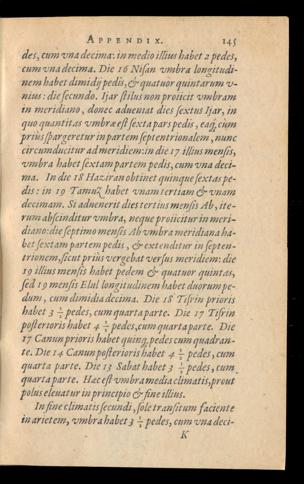 APPENDIX. 145
des, cum vna decima: in medio illius habet 2 pedes,
cum vna decima. Die 16 Nisan vmbra longitudi-
nem habet dimidij pedis, & quatuor quintarum v-
nius: die secundo. Ijar stilus non proiicit vmbram
in meridiano, donec adueniat dies sextus Ijar, in
quo quantitas vmbræ est sexta pars pedis, eaq́; cum
priùs spargeretur in partem septentrionalem, nunc
circumducitur ad meridiem: in die 17 illius mensis,
vmbra habet sextam partem pedis, cum vna deci-
ma. In die 18 Haziran obtinet quinque sextas pe-
dis: in 19 Tamuz habet vnam tertiam & vnam
decimam. Si aduenerit dies tertius mensis Ab, ite-
rum abscinditur vmbra, neque proiicitur in meri-
diano: die septimo mensis Ab vmbra meridiana ha-
bet sextam partem pedis, & extenditur in septen-
trionem, sicut priùs vergebat versus meridiem: die
19 illius mensis habet pedem & quatuor quintas,
sed 19 mensis Elul longitudinem habet duorum pe-
dum, cum dimidia decima. Die 18 Tisrin prioris
habet 3 1/2 pedes, cum quarta parte. Die 17 Tisrin
posterioris habet 4 1/2 pedes, cum quarta parte. Die
17 Canun prioris habet quinq; pedes cum quadran-
te. Die 14 Canun posterioris habet 4 1/2 pedes, cum
quarta parte. Die 13 Sabat habet 3 1/2 pedes, cum
quarta parte. Hæc est vmbra media climatis, prout
polus eleuatur in principio & fine illius.
In fine climatis secundi, sole transitum faciente
in arietem, vmbra habet 3 1/2 pedes, cum vna deci-
K